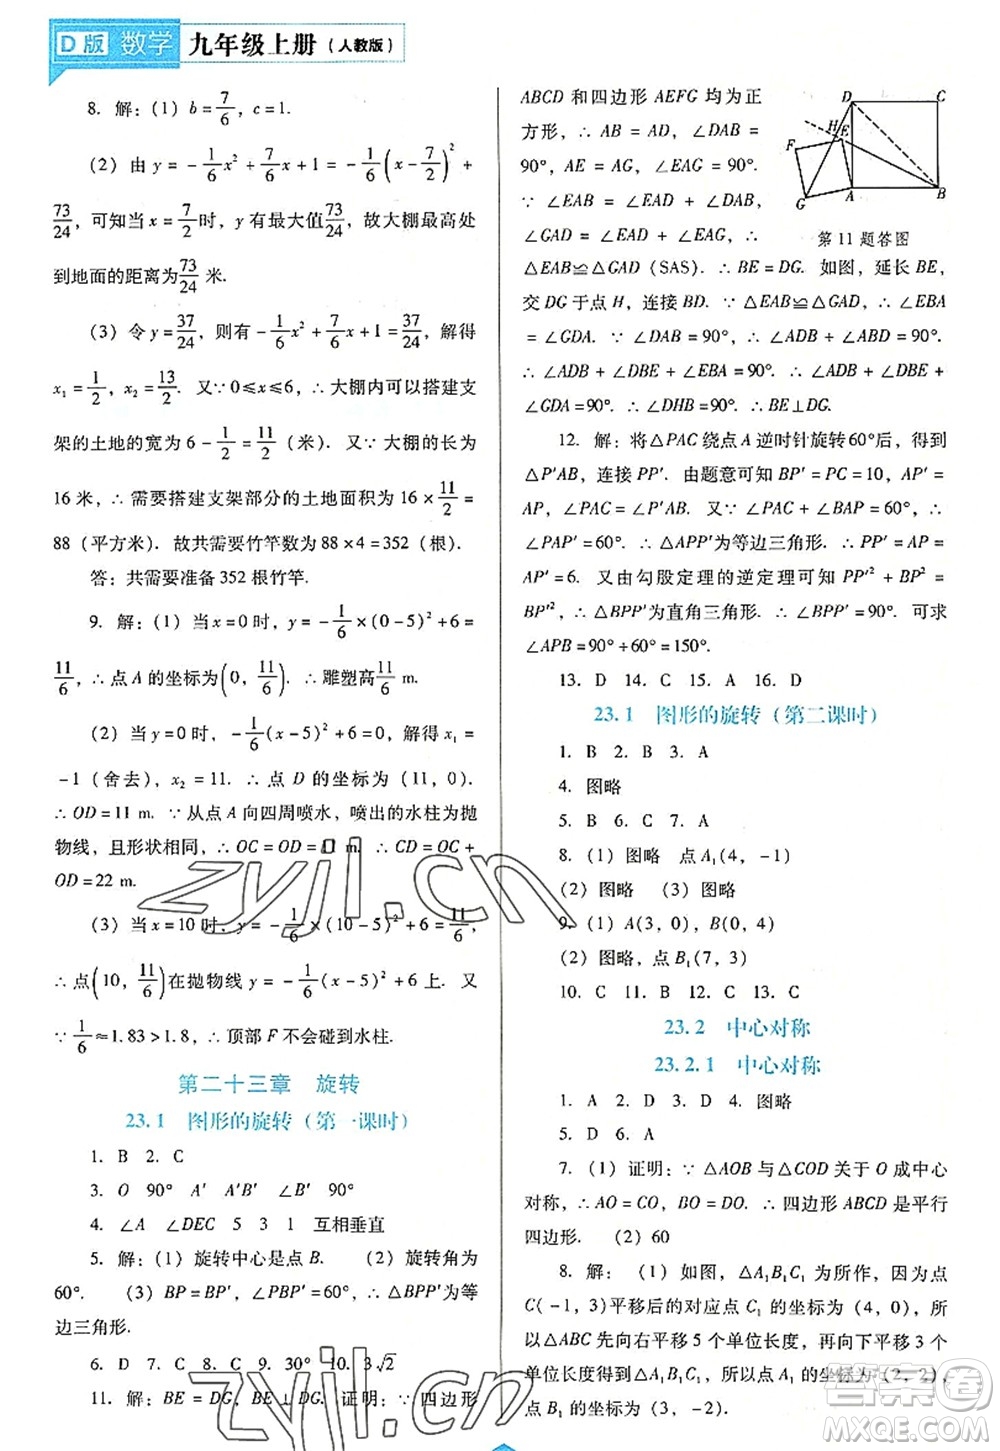 D版 数学 九年级上册（人教版）
8. 解：(1) b=7/6，c=1.
(2) 由 y=-1/6x²+7/6x+1=-1/6(x-7/2)²+
73/24，可知当 x=7/2时，y 有最大值73/24，故大棚最高处
到地面的距离为73/24 米.
(3) 令 y=37/24，则有-1/6x²+7/6x+1=37/24，解得
x₁=1/2，x₂=13/2. 又∵0≤x≤6，∴大棚内可以搭建支
架的土地的宽为 6-1/2=11/2（米）. 又∵大棚的长为
16 米，∴需要搭建支架部分的土地面积为 16×11/2=
88（平方米）. 故共需要竹竿数为 88×4=352（根）.
答：共需要准备 352 根竹竿.
9. 解：(1) 当 x=0 时，y=-1/6×(0-5)²+6=
11/6，∴点 A 的坐标为(0，11/6). ∴雕塑高11/6 m.
(2) 当 y=0 时，-1/6(x-5)²+6=0，解得 x₁=
-1（舍去），x₂=11. ∴点 D 的坐标为（11，0）.
∴OD=11 m. ∵从点 A 向四周喷水，喷出的水柱为抛
物线，且形状相同，∴OC=OD= m. ∴CD=OC+
OD=22 m.
(3) 当 x=10 时，y=-1/6×(10-5)²+6=11/6，
∴点(10，11/6)在抛物线 y=-1/6(x-5)²+6 上. 又
∵11/6≈1.83>1.8，∴顶部 F 不会碰到水柱.
第二十三章 旋转
23.1 图形的旋转（第一课时）
1. B 2. C
3. O 90° A′ A′B′ ∠B′ 90°
4. ∠A ∠DEC 5 3 1 互相垂直
5. 解：(1) 旋转中心是点 B. (2) 旋转角为
60°. (3) BP=BP′，∠PBP′=60°，∴△BPP′是等
边三角形.
6. D 7. C 8. C 9. 30° 10. 3√2
11. 解：BE=DG，BE⊥DG. 证明：∵四边形
ABCD 和四边形 AEFG 均为正
方形，∴AB=AD，∠DAB=
90°，AE=AG，∠EAG=90°.
∵∠EAB=∠EAG+∠DAB，
∠GAD=∠EAD+∠EAG，∴
△EAB≌△GAD（SAS）. ∴BE=DG. 如图，延长 BE，
交 DG 于点 H，连接 BD. ∵△EAB≌△GAD，∴∠EBA
=∠GDA. ∵∠DAB=90°，∴∠ADB+∠ABD=90°.
∴∠ADB+∠DBE+∠EBA=90°. ∴∠ADB+∠DBE+
∠GDA=90°. ∴∠DHB=90°. ∴BE⊥DG.
D C F H E G A B
第 11 题答图
12. 解：将△PAC 绕点 A 逆时针旋转 60°后，得到
△P′AB，连接 PP′. 由题意可知 BP′=PC=10，AP′=
AP，∠PAC=∠P′AB. 又∵∠PAC+∠BAP=60°，∴
∠PAP′=60°. ∴△APP′为等边三角形. ∴PP′=AP=
AP′=6. 又由勾股定理的逆定理可知 PP′²+BP²=
BP′²，∴△BPP′为直角三角形. ∴∠BPP′=90°. 可求
∠APB=90°+60°=150°.
13. D 14. C 15. A 16. D
23.1 图形的旋转（第二课时）
1. B 2. B 3. A
4. 图略
5. B 6. B 7. A
8. (1) 图略 点A₁(4，-1)
(2) 图略 (3) 图略
9. (1) A(3，0)，B(0，4)
(2) 图略，点 B₁(7，3)
10. C 11. B 12. C 13. C
23.2 中心对称
23.2.1 中心对称
1. A 2. D 3. D 4. 图略
5. D 6. A
7. (1) 证明：∵△AOB 与△COD 关于 O 成中心
对称，∴AO=CO，BO=DO. ∴四边形 ABCD 是平行
四边形. (2) 60
8. 解：(1) 如图，△A₁B₁C₁ 为所作，因为点
C(-1，3)平移后的对应点 C₁ 的坐标为（4，0），所
以△ABC 先向右平移 5 个单位长度，再向下平移 3 个
单位长度得到△A₁B₁C₁，所以点A₁ 的坐标为（2，2），
点 B₁ 的坐标为（3，-2）.
zyjl.cn
zyjl.cn
答案圈
MXQE.COM